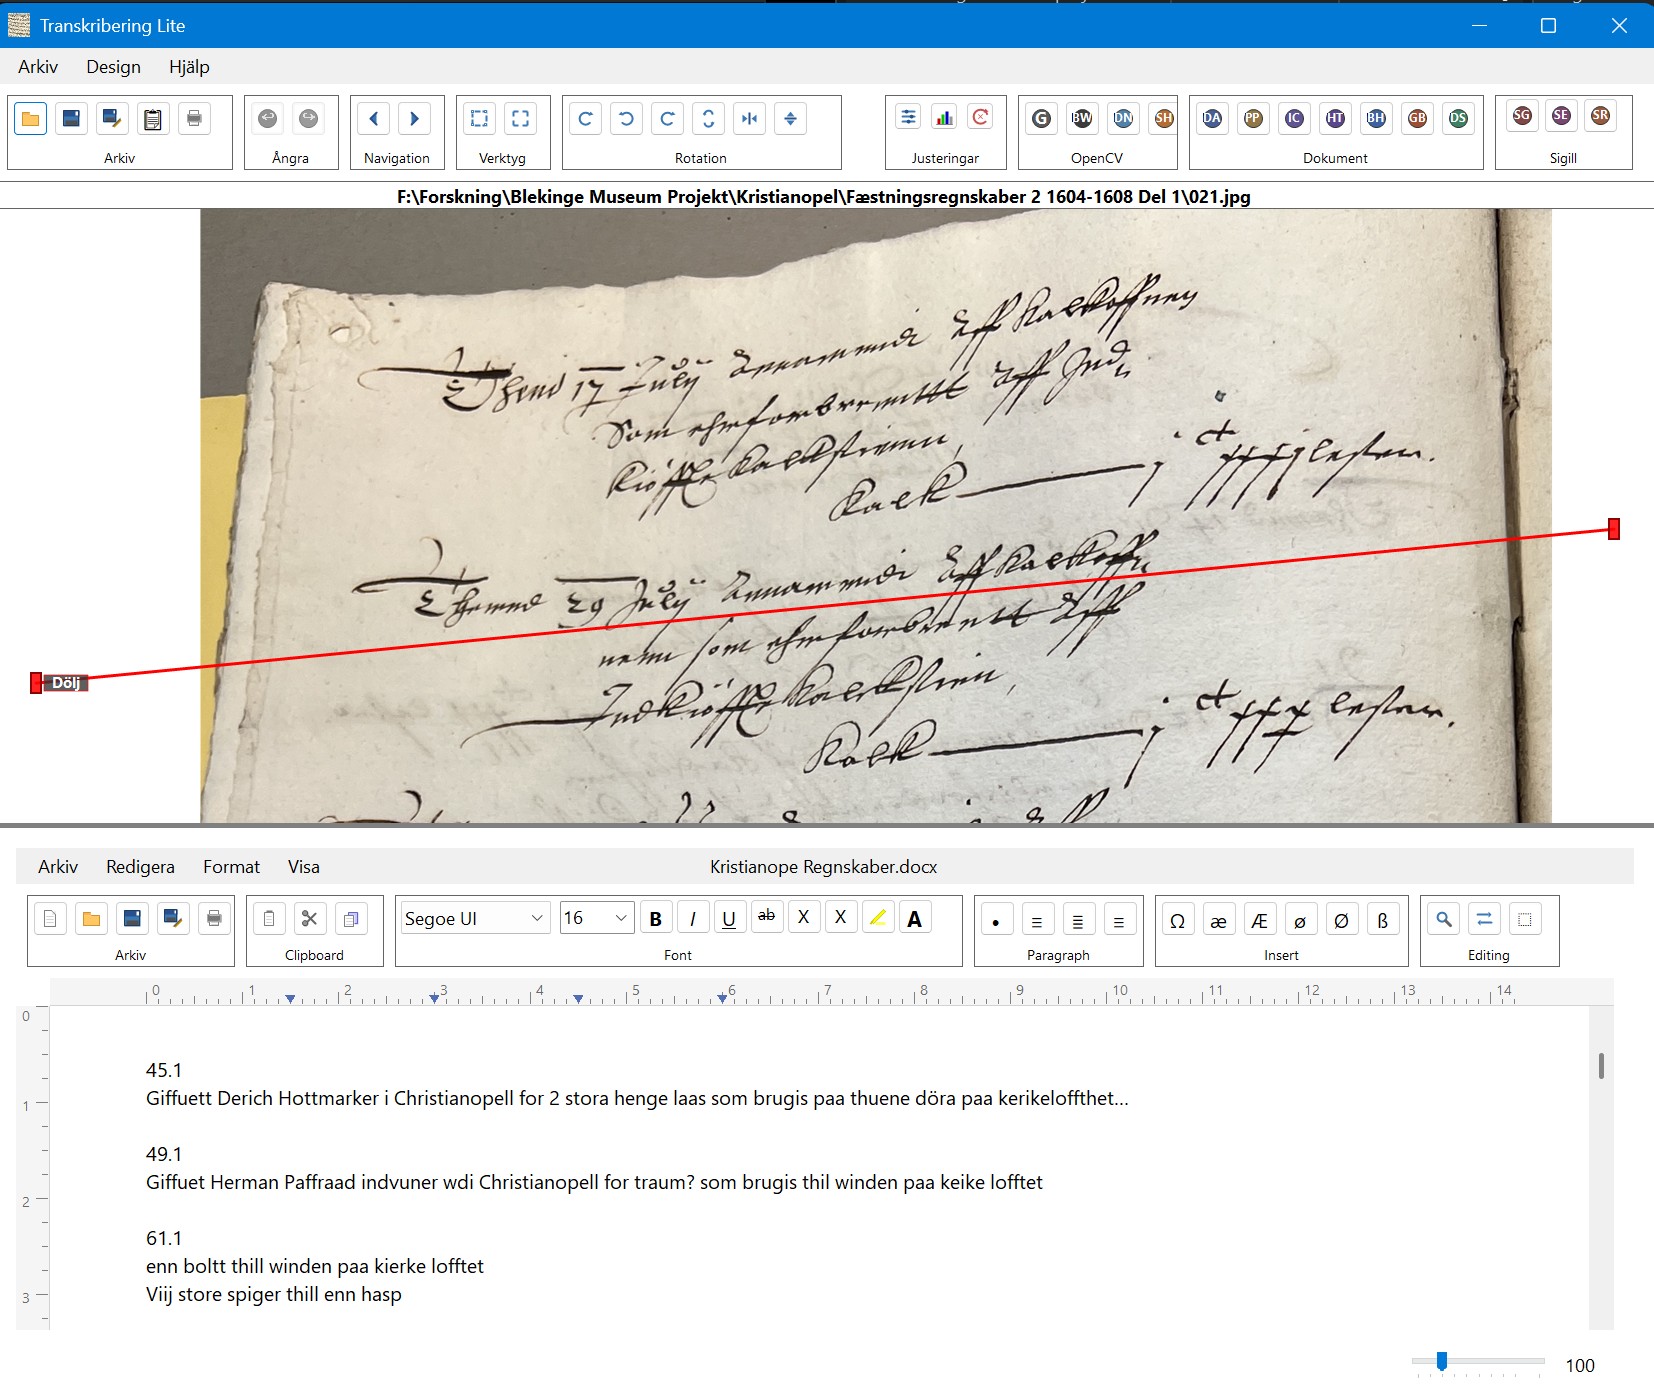 Transkribering Lite
Arkiv Design Hjälp
G BW DN SH DA PP IC HT BH GB DS SG SE SR
Arkiv Ångra Navigation Verktyg Rotation Justeringar OpenCV Dokument Sigill
F:\Forskning\Blekinge Museum Projekt\Kristianopel\Fæstningsregnskaber 2 1604-1608 Del 1\021.jpg
Thend 17 July Annammidt Aff Kalckoffnen
Som ehr forbrenntt Aff Ind
kiøffte Kalckstienn,
Kalck j lester.
Thennd 29 July Annammidt Aff Kalckoff
nenn som ehr forbrentt Aff
Indkiøffte Kalckstien,
Kalck j lester.
Dölj
Arkiv Redigera Format Visa Kristianope Regnskaber.docx
Segoe UI 16 B I U ab X X A • Ω æ Æ ø Ø ß
Arkiv Clipboard Font Paragraph Insert Editing
0 1 2 3 4 5 6 7 8 9 10 11 12 13 14
0
1
2
3
45.1
Giffuett Derich Hottmarker i Christianopell for 2 stora henge laas som brugis paa thuene döra paa kerikeloffthet...
49.1
Giffuet Herman Paffraad indvuner wdi Christianopell for traum? som brugis thil winden paa keike lofftet
61.1
enn boltt thill winden paa kierke lofftet
Viij store spiger thill enn hasp
100